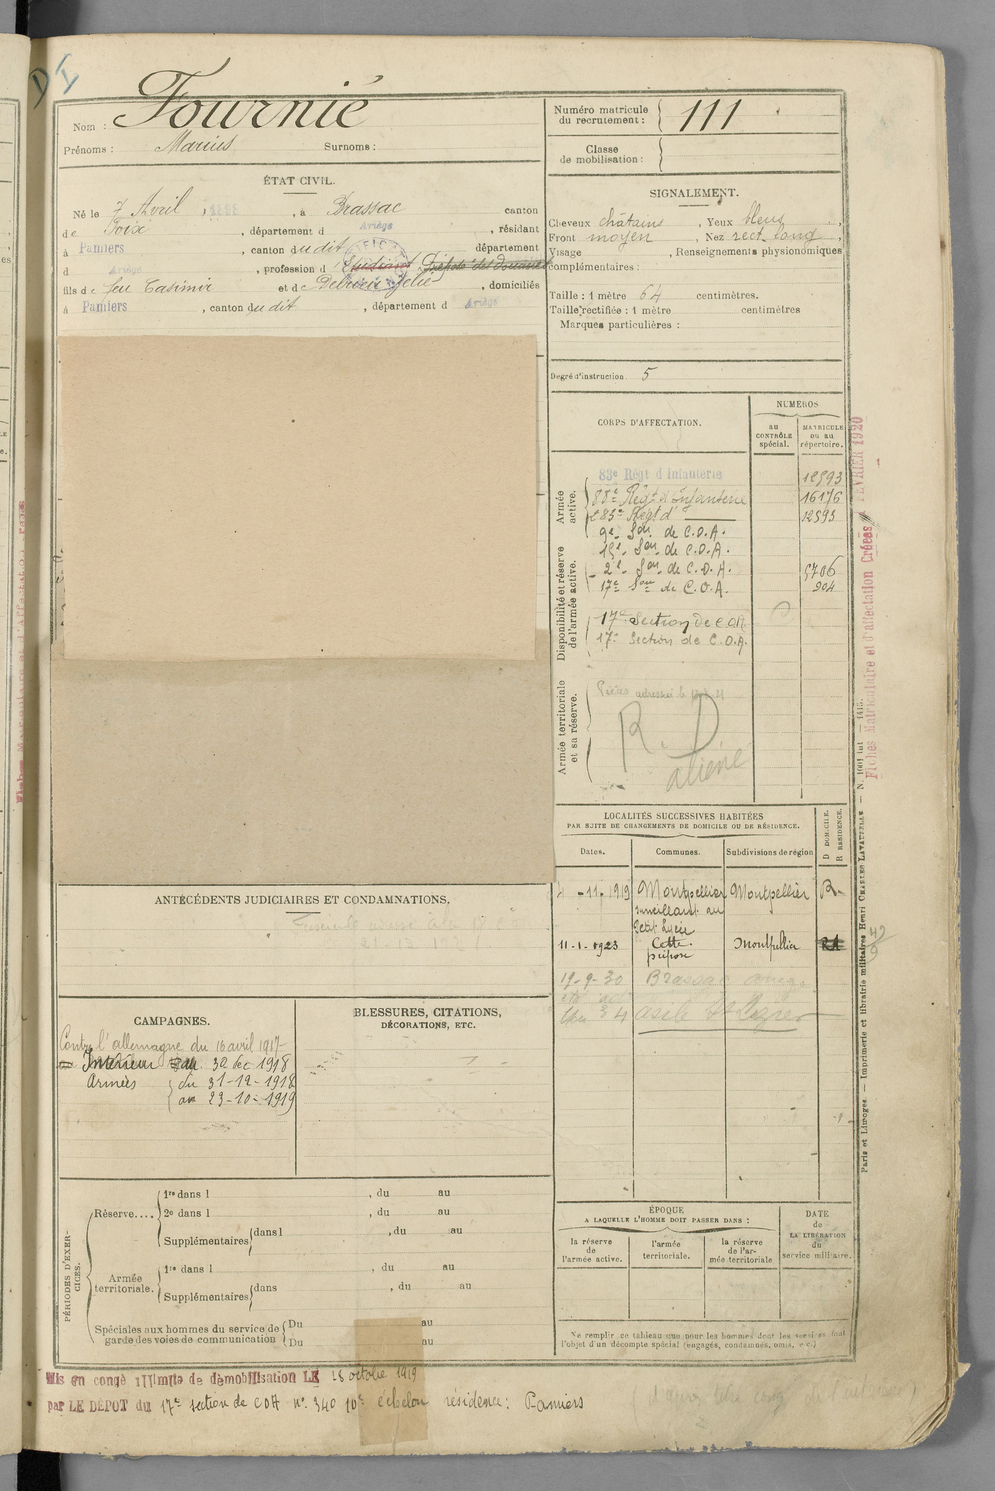 D I
Nom : Fournié
Prénoms : Marius Surnoms :
Numéro matricule du recrutement : 111
Classe de mobilisation :
ÉTAT CIVIL.
Né le 7 Avril 1898, à Brassac canton
de Foix, département d Ariège, résidant
à Pamiers, canton dudit département
d Ariège, profession d Etudiant Préposé des Douanes
fils de feu Casimir et de Julie, domiciliés
à Pamiers, canton dudit, département d Ariège
SIGNALEMENT.
Cheveux châtains, Yeux bleus
Front moyen, Nez rect. long
Visage, Renseignements physionomiques
complémentaires :
Taille : 1 mètre 64 centimètres.
Taille rectifiée : 1 mètre centimètres
Marques particulières :
Degré d'instruction. 5
CORPS D'AFFECTATION.
NUMÉROS
au CONTRÔLE spécial.
MATRICULE ou au répertoire.
Armée active.
83e Régt d'Infanterie 12593
88e Régt d'Infanterie 16176
283e Régt d' 12593
9e Son de C.O.A.
15e Son de C.O.A.
Disponibilité et réserve de l'armée active.
2e Son de C.O.A. 5706
17e Son de C.O.A. 904
17e Section de C.O.A.
17e Section de C.O.A.
Armée territoriale et sa réserve.
R. D
aliéné
Fiches Matriculaire et d'affectation Créées FEVRIER 1920
LOCALITÉS SUCCESSIVES HABITÉES
PAR SUITE DE CHANGEMENTS DE DOMICILE OU DE RÉSIDENCE.
D DOMICILE.
R RÉSIDENCE.
Dates. Communes. Subdivisions de région
4-11-1919 Montpellier Montpellier R-
surveillant au
Petit Lycée
11-1-1923 Cette Montpellier
préposé
19-9-30 Brassac
asile
ANTÉCÉDENTS JUDICIAIRES ET CONDAMNATIONS.
CAMPAGNES.
Contre l'allemagne du 16 avril 1917
Intérieur au 30 dec 1918
Armées du 31-12-1918
au 23-10-1919
BLESSURES, CITATIONS,
DÉCORATIONS, ETC.
PÉRIODES D'EXERCICES.
Réserve....
1re dans l , du au
2e dans l , du au
Supplémentaires dans l , du au
Armée territoriale.
1re dans l , du au
Supplémentaires dans , du au
Spéciales aux hommes du service de garde des voies de communication
Du au
Du au
ÉPOQUE
A LAQUELLE L'HOMME DOIT PASSER DANS :
la réserve de l'armée active.
l'armée territoriale.
la réserve de l'armée territoriale
DATE de LA LIBÉRATION du service militaire.
Ne remplir ce tableau que pour les hommes dont les services font
l'objet d'un décompte spécial (engagés, condamnés, omis, etc.)
Paris et Limoges. — Imprimerie et librairie militaires Henri CHARLES-LAVAUZELLE.
Mis en congé illimité de démobilisation LE 23 octobre 1919
par LE DÉPOT du 17e section de COA n° 340 10e échelon résidence : Pamiers